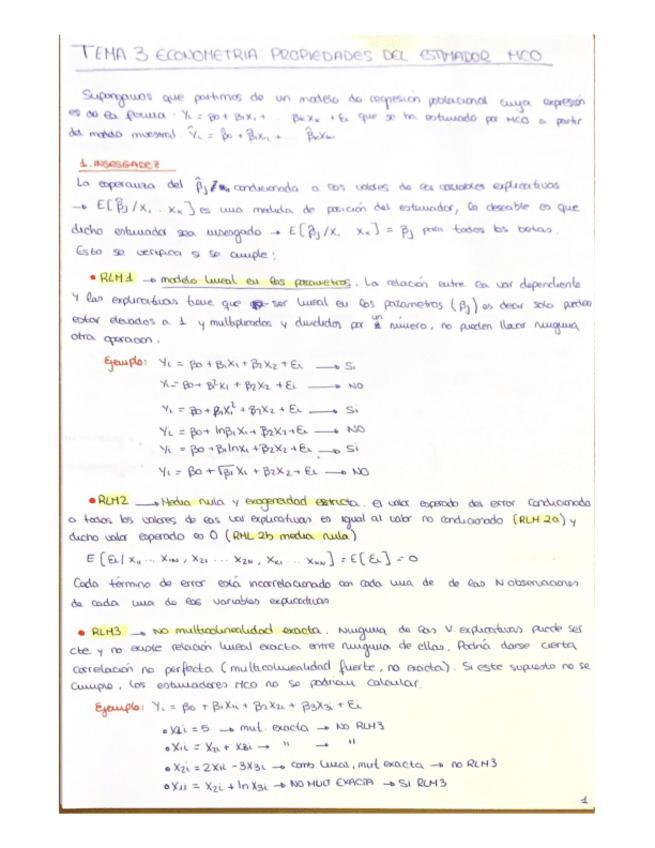 TEMA 3 ECONOMETRIA: PROPIEDADES DEL ESTIMADOR MCO
Supongamos que partimos de un modelo de regresión poblacional cuya expresión
es de la forma: Yi = β0 + β1X1 + ... βkXk + Ei que se ha estimado por MCO a partir
del modelo muestral. Ŷi = β̂0 + β̂1X1 + ... β̂kXki.
1. INSESGADEZ
La esperanza del β̂j condicionada a los valores de las variables explicativas
→ E[β̂j/X1 ... Xk] es una medida de posición del estimador, lo deseable es que
dicho estimador sea insesgado → E[β̂j/X1 Xk] = βj para todos los betas.
Esto se verifica si se cumple:
• RLM1 → modelo lineal en los parámetros. La relación entre la var dependiente
y las explicativas tiene que ser lineal en los parametros (βj) es decir solo pueden
estar elevados a 1 y multiplicados y divididos por un número, no pueden llevar ninguna
otra operación.
Ejemplo: Yi = β0 + β1X1 + β2X2 + Ei → Si
Yi = β0 + β²X1 + β2X2 + Ei → NO
Yi = β0 + β1X1² + β2X2 + Ei → Si
Yi = β0 + lnβ1X1 + β2X2 + Ei → NO
Yi = β0 + β1lnX1 + β2X2 + Ei → Si
Yi = β0 + √β1 X1 + β2X2 + Ei → NO
• RLM2 → Media nula y exogeneidad estricta. El valor esperado del error condicionado
a todos los valores de las var explicativas es igual al valor no condicionado (RLM 2a) y
dicho valor esperado es 0 (RML 2b media nula)
E [Ei/ X11 ... X1N, X21 ... X2N, XK1 ... XKN] = E[Ei] = 0
Cada término de error está incorrelacionado con cada una de de las N observaciones
de cada una de las variables explicativas
• RLM3 → NO multicolinealidad exacta. Ninguna de las V. explicativas puede ser
cte. y no existe relación lineal exacta entre ninguna de ellas. Podría darse cierta
correlación no perfecta (multicolinealidad fuerte, no exacta). Si este supuesto no se
cumple, los estimadores MCO no se podrían calcular.
Ejemplo: Yi = β0 + β1X1i + β2X2i + β3X3i + Ei
• X2i = 5 → mut. exacta → NO RLM3
• X1i = X2i + X3i → " → "
• X2i = 2X1i - 3X3i → comb. lineal, mut exacta → no RLM3
• X1i = X2i + ln X3i → NO MULT EXACTA → SI RLM3
1